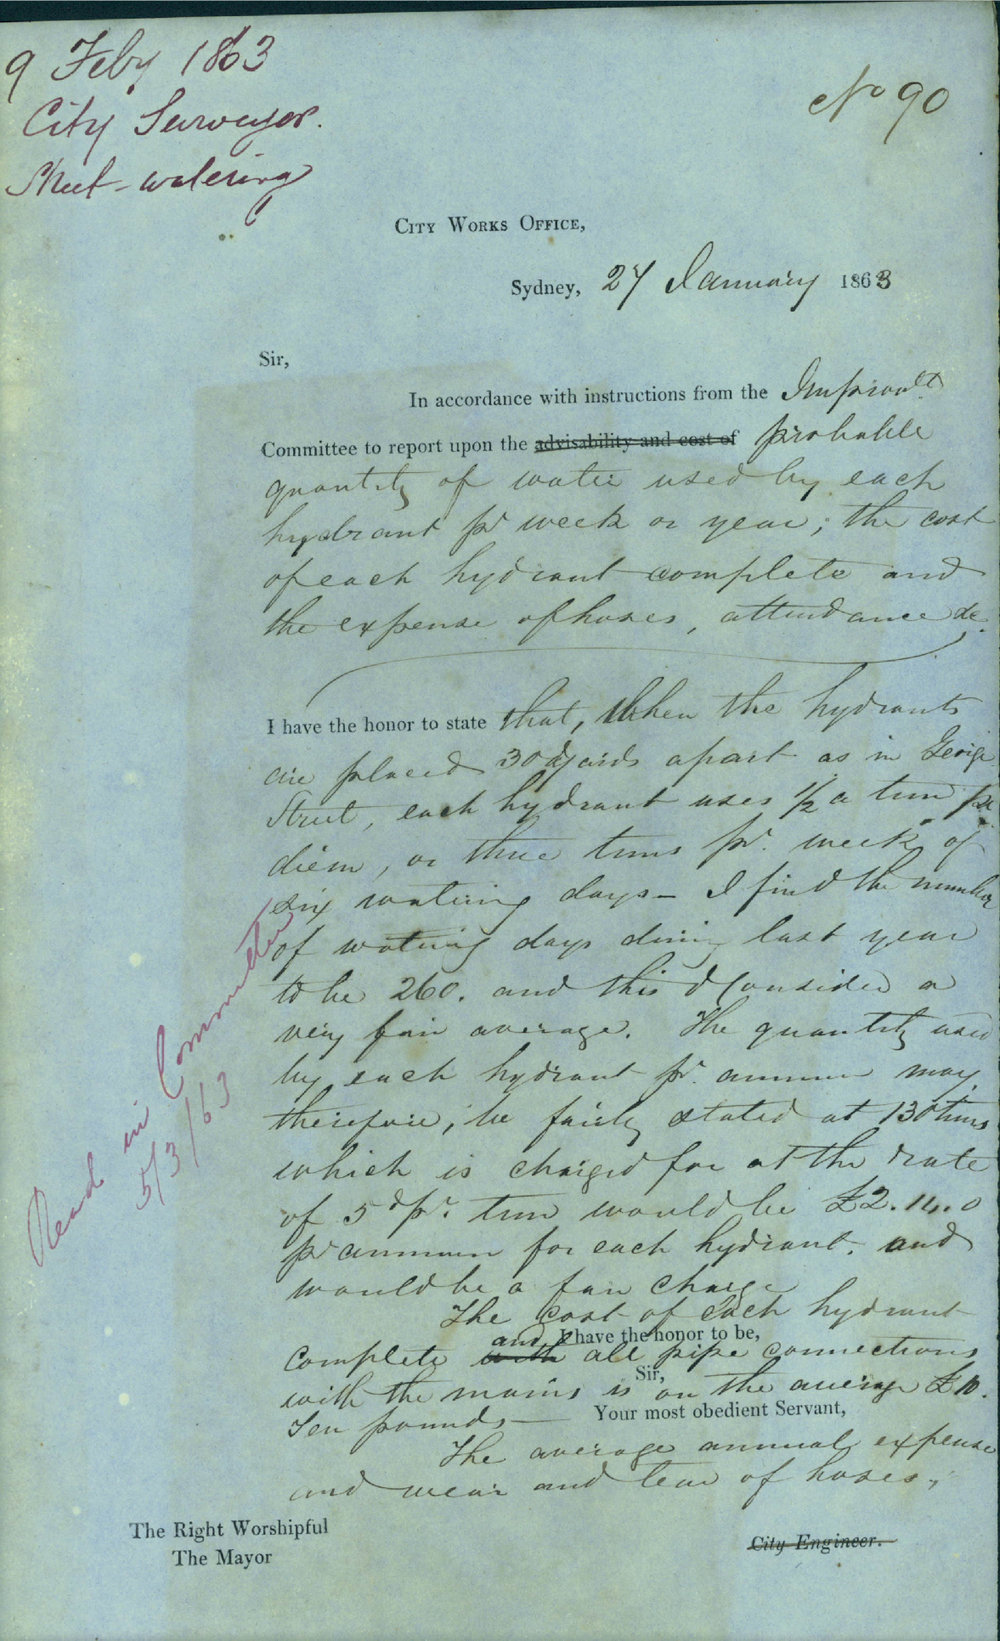 9 Feby 1863
City Surveyor.
Street-watering
No 90
CITY WORKS OFFICE,
Sydney, 27 January 1863
Sir,
In accordance with instructions from the Improvt.
Committee to report upon the advisability and cost of probable
quantity of water used by each
hydrant pr week or year; the cost
of each hydrant complete and
the expense of hoses, attendance &c.
I have the honor to state that, when the hydrants
are placed 30 yards apart as in George
Street, each hydrant uses 1/2 a tun pr
diem, or three tuns pr. week of
six watering days - I find the number
of watering days during last year
to be 260. and this I consider a
very fair average. The quantity used
by each hydrant pr. annum may,
therefore, be fairly stated at 130 tuns
which is charged for at the rate
of 5d pr. tun would be £2.14.0
pr annum for each hydrant. and
would be a fair charge
The cost of each hydrant
and I have the honor to be,
complete with all pipe connections
Sir,
with the mains is on the average £10.
Ten pounds — Your most obedient Servant,
The average annual expense
and wear and tear of hoses,
The Right Worshipful
The Mayor
City Engineer.
Read in Committee
5/3/63